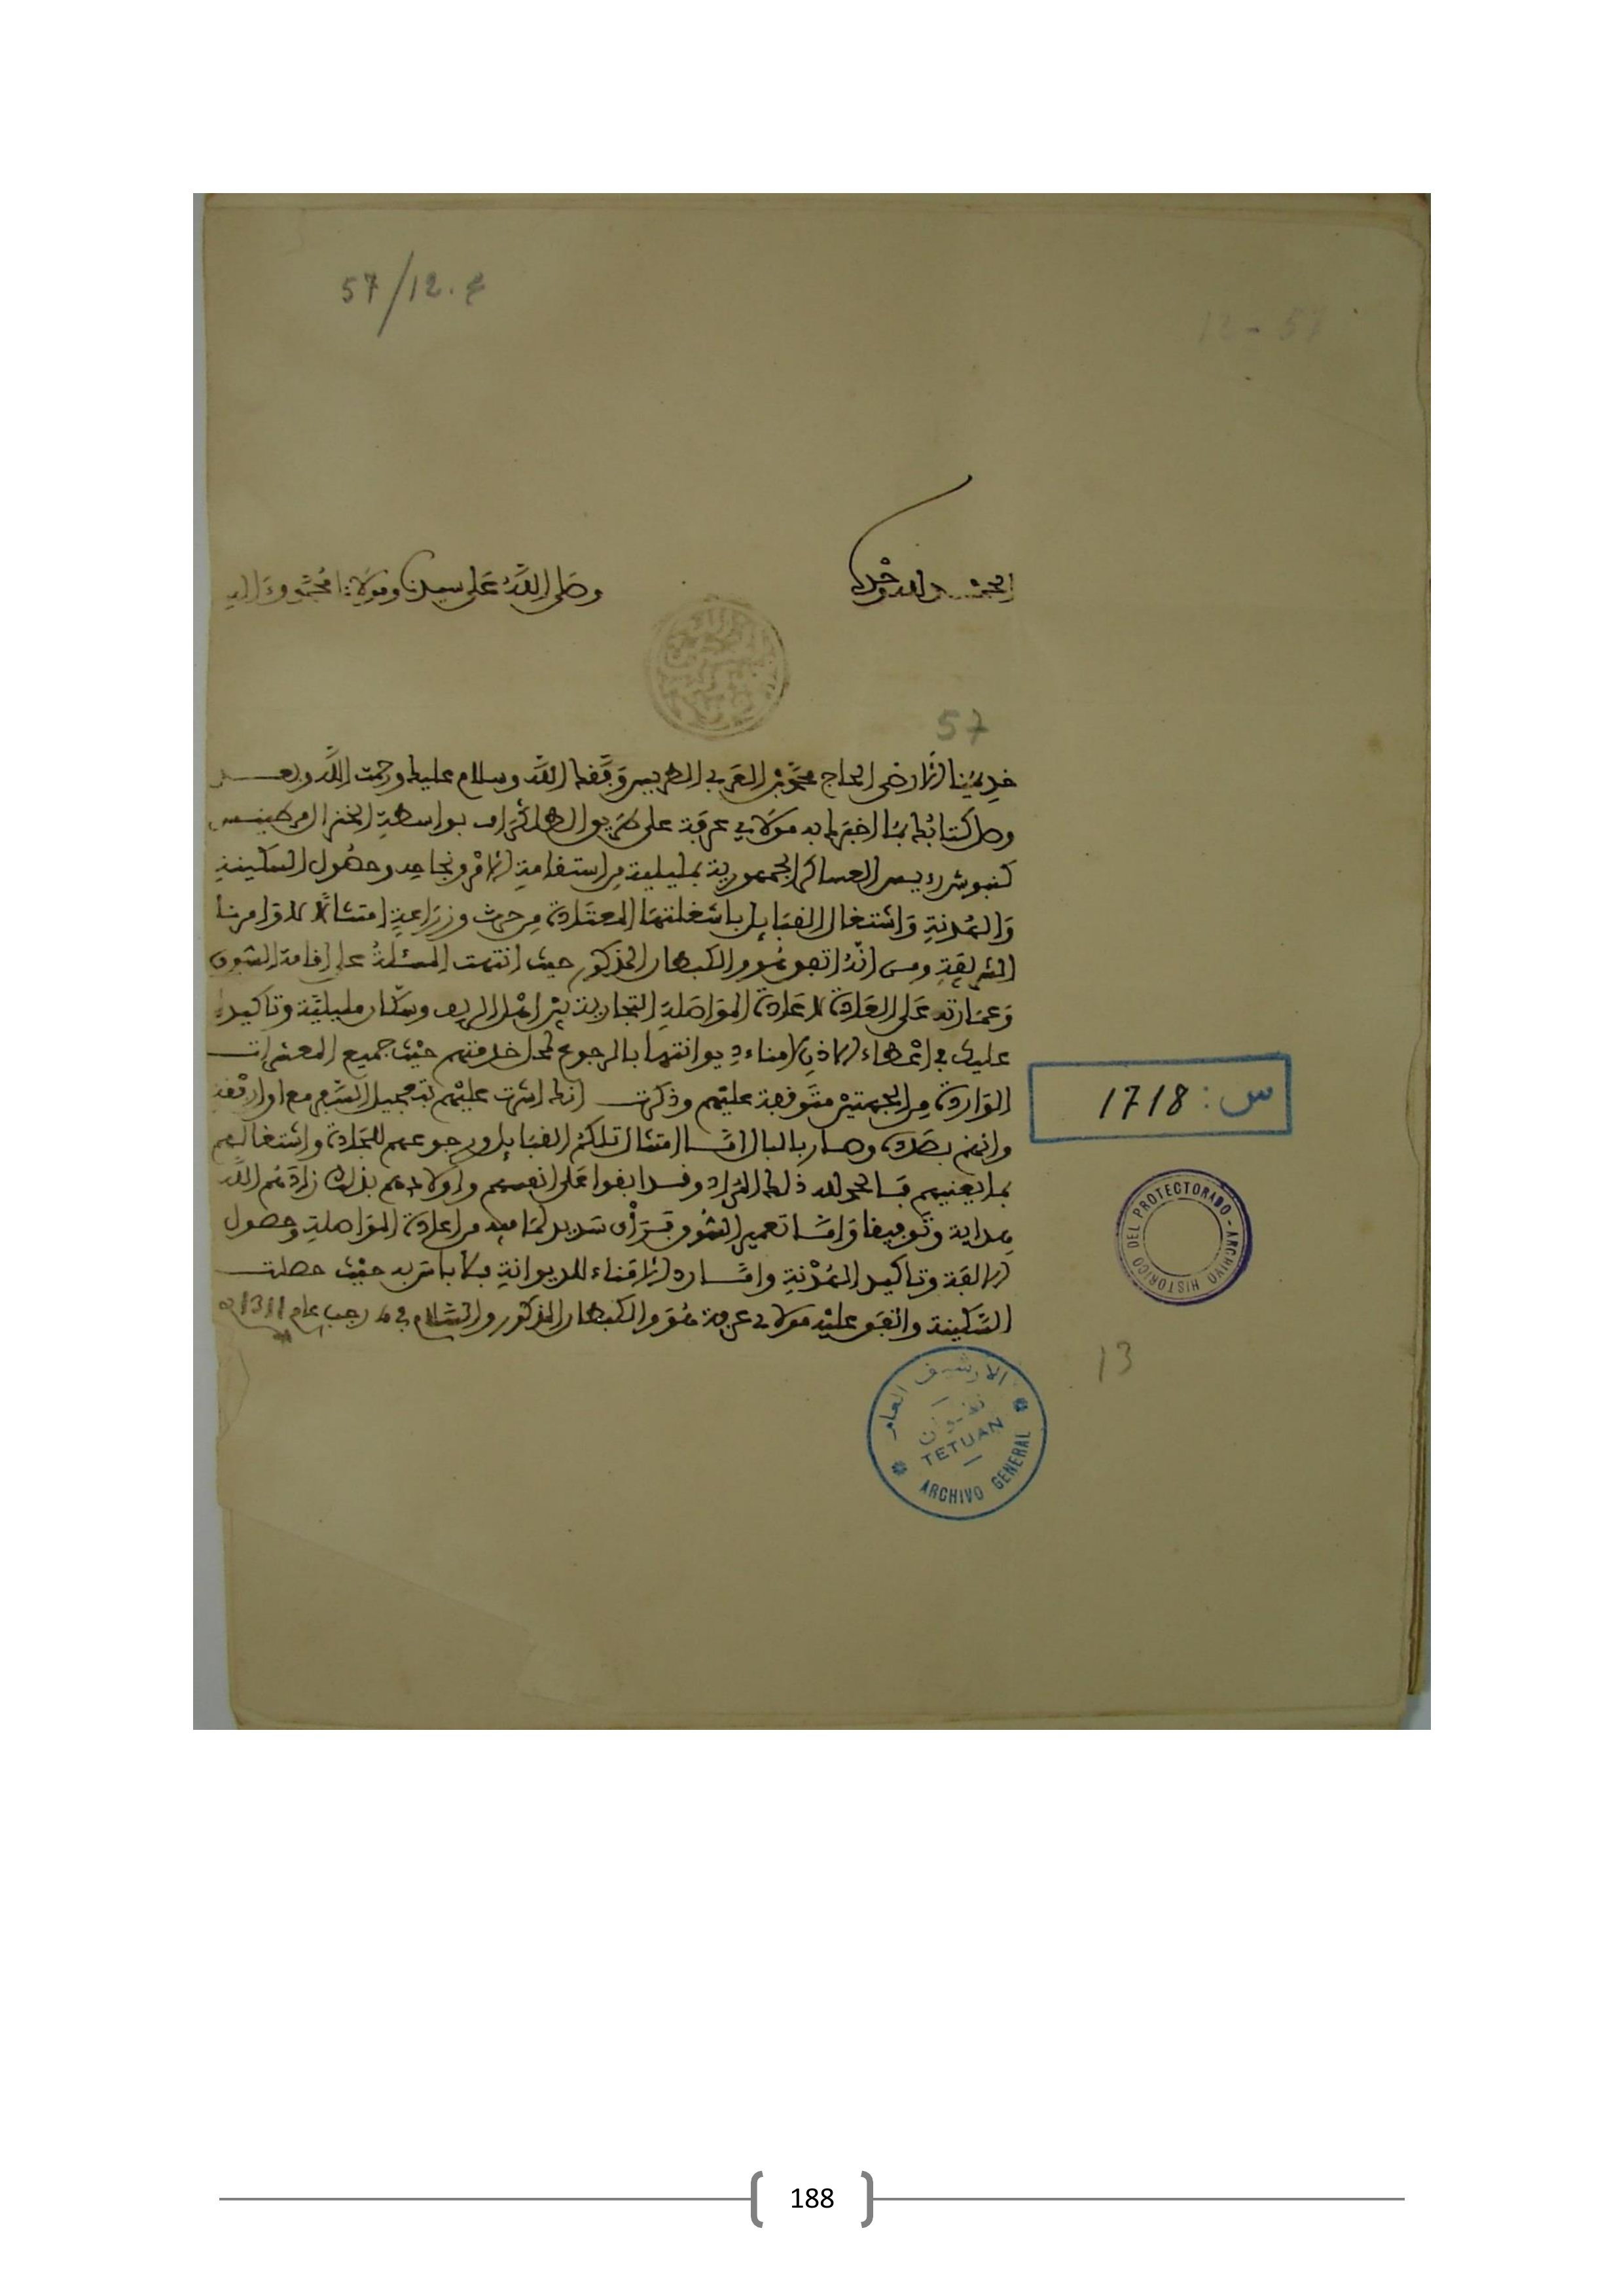 57/12.
12 - 57
الحمد لله وحده
وصلى الله على سيدنا ومولانا محمد وءاله
57
خديمنا الأرضى الحاج محمد بن العربي الطريس وفقك الله وسلام عليك ورحمت الله وبعد
وصل كتابك بما اخبرك به مولاي عرفة على طريق الطلگراف بواسطة الجنرال مرطينس
كنبوش رءيس العساكر الجمهورية بمليلية من استقامة الأمر ونجاحه وحصول السكينة
والهدنة واشتغال القبايل باشغلتها المعتادة من حرث وزراعة امتثالا لأوامرنا
الشريفة ومن انه اتفق هو والكبطان المذكور حيث انتهت المسئلة على إقامة السوق
وعمارته على العادة لاعادة المواصلة التجارية بين اهل الريف وسكان مليلية وتاكيده
عليك في اعطاء الاذن لامناء ديوانتها بالرجوع لمحل خدمتهم حيث جميع المعشرات
الواردة من الجهتين متوقفة عليهم وذكرت انك اشرت عليهم بتعجيل السفر مع اول رفقة
وانهم بصدده وصار بالبال اما امتثال تلكم القبايل ورجوعهم للجادة واشتغالهم
بما يعنيهم فالحمد لله ذلك المراد وقد ابقوا على انفسهم واولادهم بذلك زادهم الله
هداية وتوفيقا واما تعمير السوق فرأي سديد لما فيه من اعادة المواصلة وحصول
الالفة وتاكيد الهدنة واما رد الأمناء للديوانة فلا باس به حيث حصلت
السكينة واتفق عليه مولاي عرفة هو والكبطان المذكور والسلام في رجب عام 1311
س : 1718
ARCHIVO HISTORICO DEL PROTECTORADO
13
الارشيف العام
تطوان
TETUAN
ARCHIVO GENERAL
188